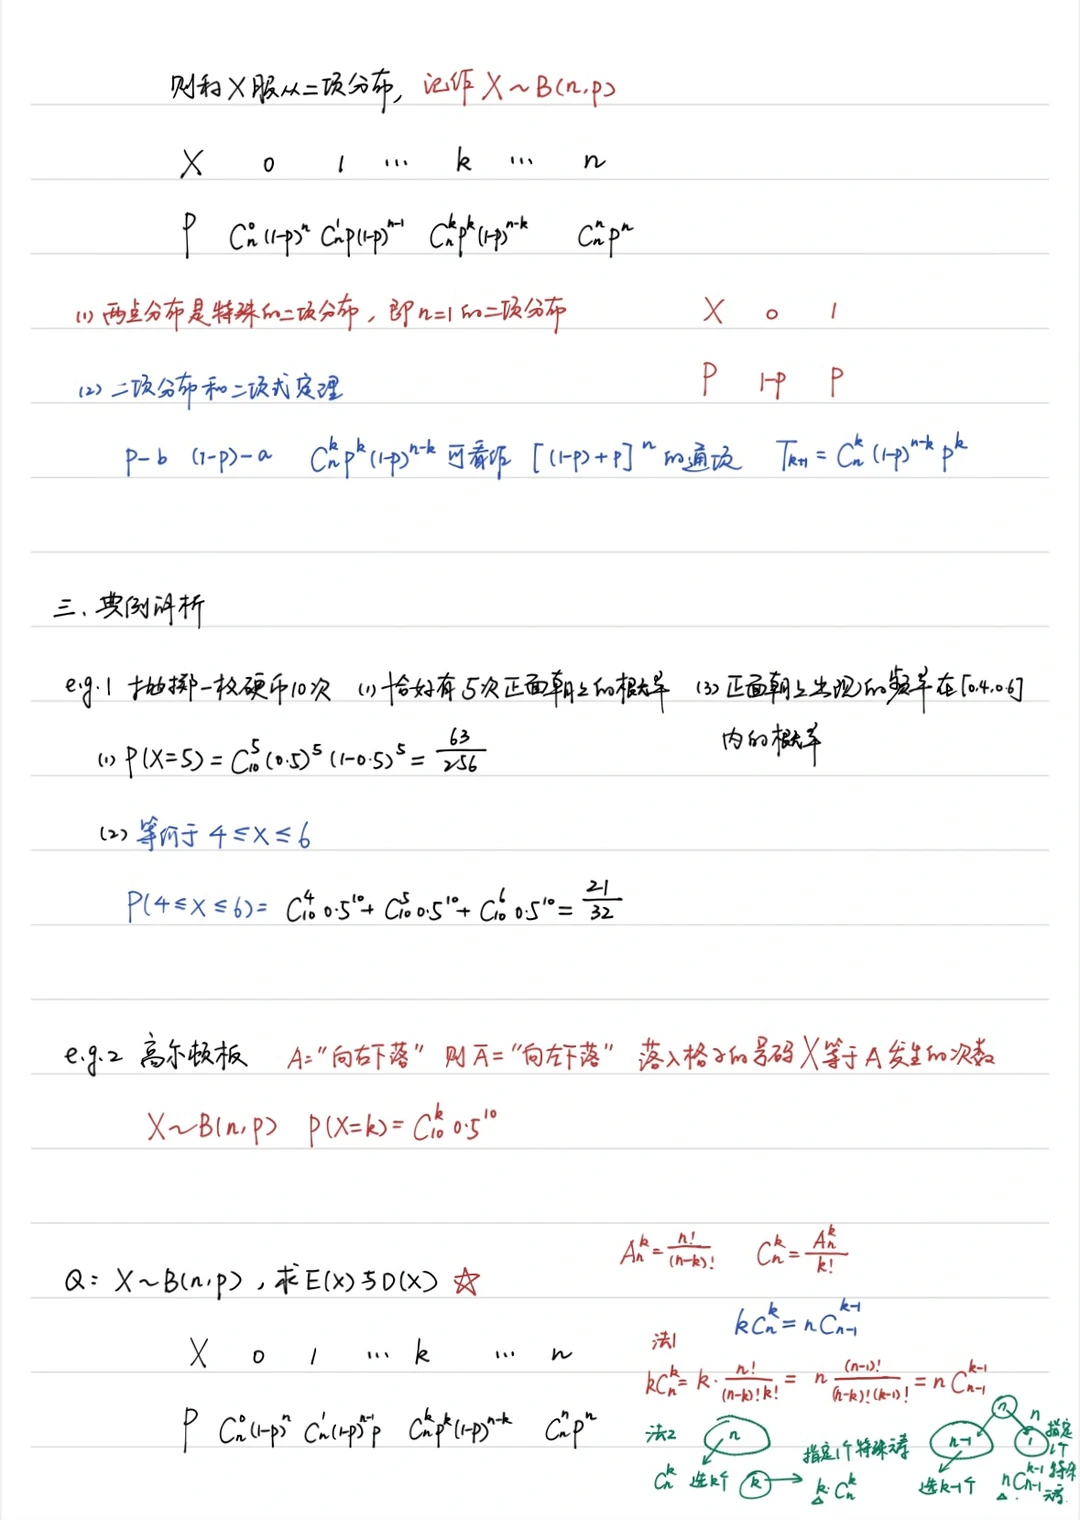 则称X服从二项分布, 记作 X~B(n,p)
X 0 1 … k … n
P C_n^0(1-p)^n C_n^1p(1-p)^{n-1} C_n^kp^k(1-p)^{n-k} C_n^np^n
(1) 两点分布是特殊的二项分布, 即n=1的二项分布
X 0 1
P 1-p p
(2) 二项分布和二项式定理
p-b (1-p)-a C_n^kp^k(1-p)^{n-k} 可看作 [(1-p)+p]^n 的通项 T_{k+1}=C_n^k(1-p)^{n-k}p^k
三、典例评析
e.g.1 抛掷一枚硬币10次 (1) 恰好有5次正面朝上的概率 (2) 正面朝上出现的频率在[0.4,0.6]
内的概率
(1) P(X=5)=C_{10}^5(0.5)^5(1-0.5)^5=63/256
(2) 等价于 4≤X≤6
P(4≤X≤6)= C_{10}^4 0.5^{10}+C_{10}^5 0.5^{10}+C_{10}^6 0.5^{10}=21/32
e.g.2 高尔顿板 A="向右下落" 则Ā="向左下落" 落入格子的号码X等于A发生的次数
X~B(n,p) P(X=k)=C_{10}^k 0.5^{10}
A_n^k=n!/(n-k)! C_n^k=A_n^k/k!
Q: X~B(n,p), 求E(X)与D(X) ☆
kC_n^k=nC_{n-1}^{k-1}
X 0 1 … k … n
P C_n^0(1-p)^n C_n^1(1-p)^{n-1}p C_n^kp^k(1-p)^{n-k} C_n^np^n
法1
kC_n^k=k·n!/((n-k)!k!)=n (n-1)!/((n-k)!(k-1)!)=nC_{n-1}^{k-1}
法2
n
C_n^k 选k个 k
指定1个特殊元素
k·C_n^k
n
n-1
1
n
指定
1个
特殊
元素
选k-1个
nC_{n-1}^{k-1}